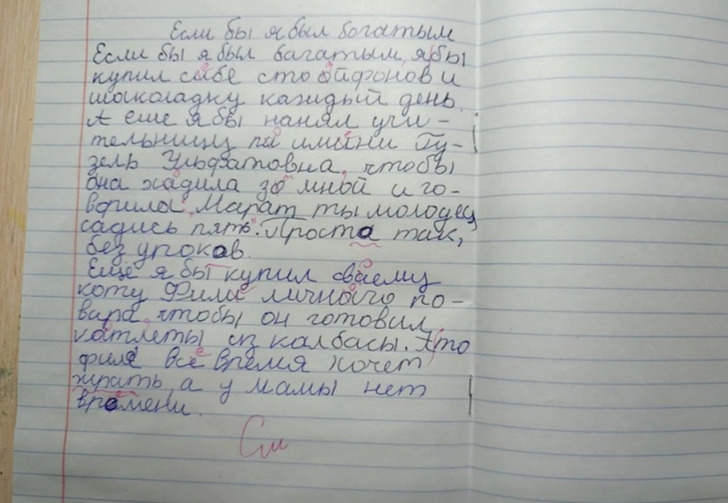 Если бы я был богатым
Если бы я был багатым, я бы
купил сибе сто айфонов и
шоколадку каждый день.
А еше я бы нанял учи-
тельницу па имини Гу-
зель Ульфатовна, чтобы
она хадила за мной и го-
ворила: Марат ты молодец
садись пять. Проста так,
без уроков.
Ещё я бы купил сваему
коту Филе личного по-
вара чтобы он готовил
катлеты из калбасы. А то
филя всё время хочет
жрать, а у мамы нет
времени.
См